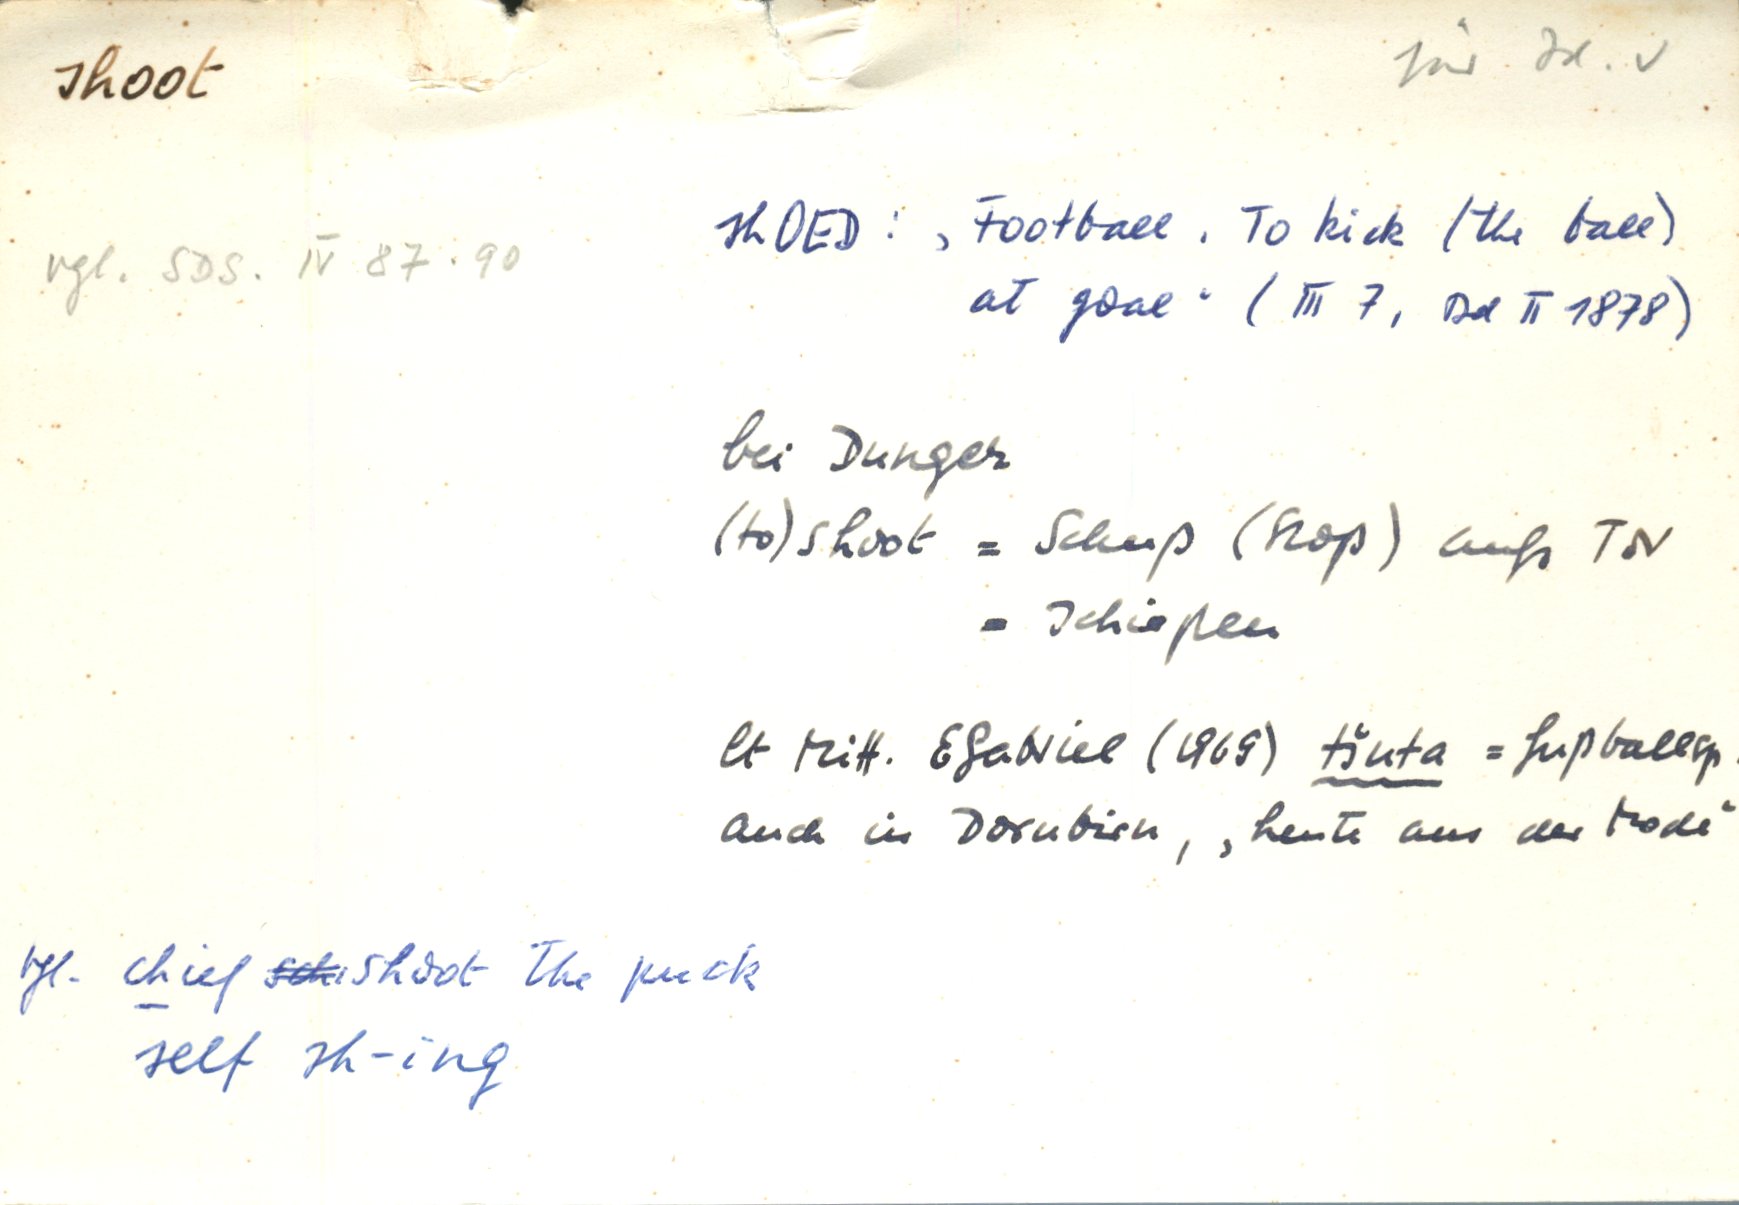 shoot
für Bd. V
vgl. SDS. IV 87.90
shOED: „Football. To kick (the ball)
at goal“ (III 7, Bd II 1878)
bei Dunger
(to) shoot = Schuß (Stoß) aufs Tor
= Schießen
lt Mitt. EGabriel (1969) tšuta = fußballsp.
auch in Dornbirn, „heute aus der Mode“
vgl. chief sch shoot the puck
self sh-ing